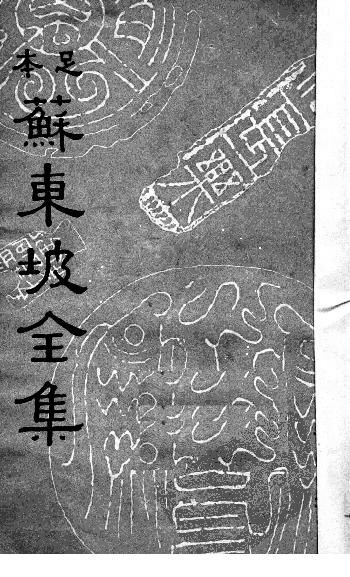 足本
蘇東坡全集